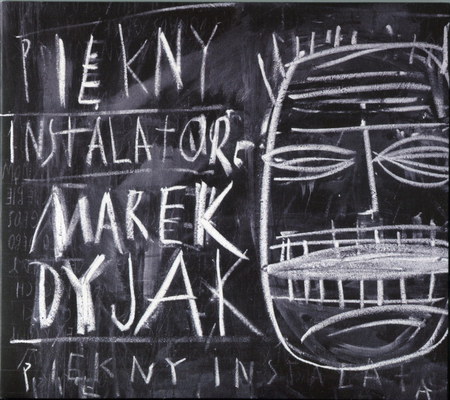 PIĘKNY
INSTALATOR
MAREK
DYJAK
PIĘKNY INSTALAT